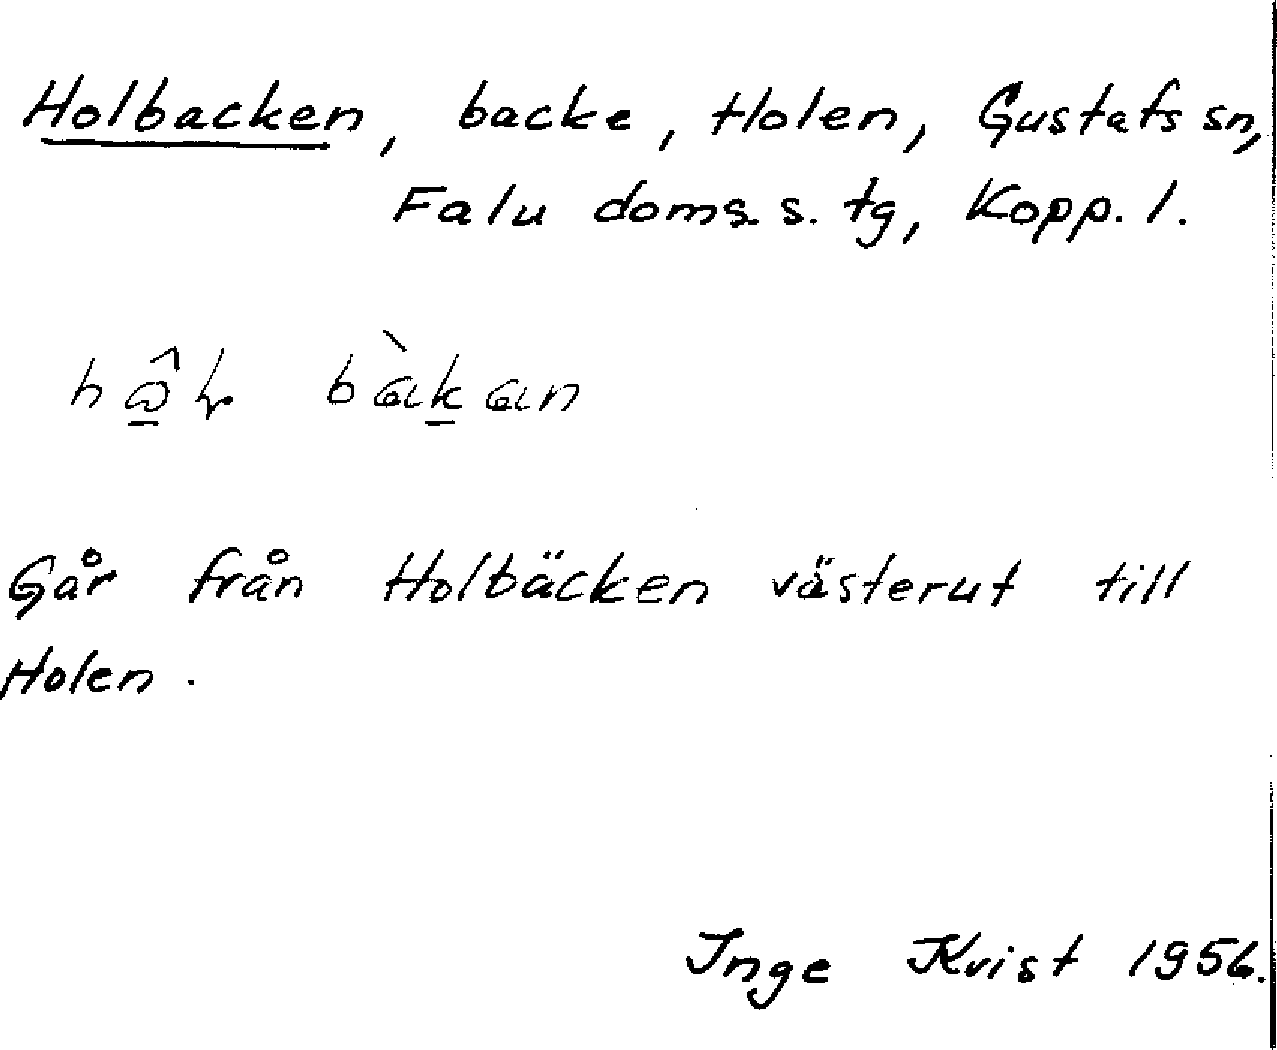 Holbacken, backe, Holen, Gustafs sn,
Falu doms. s. tg, Kopp. l.
Går från Holbäcken västerut till
Holen.
Inge Kvist 1956.